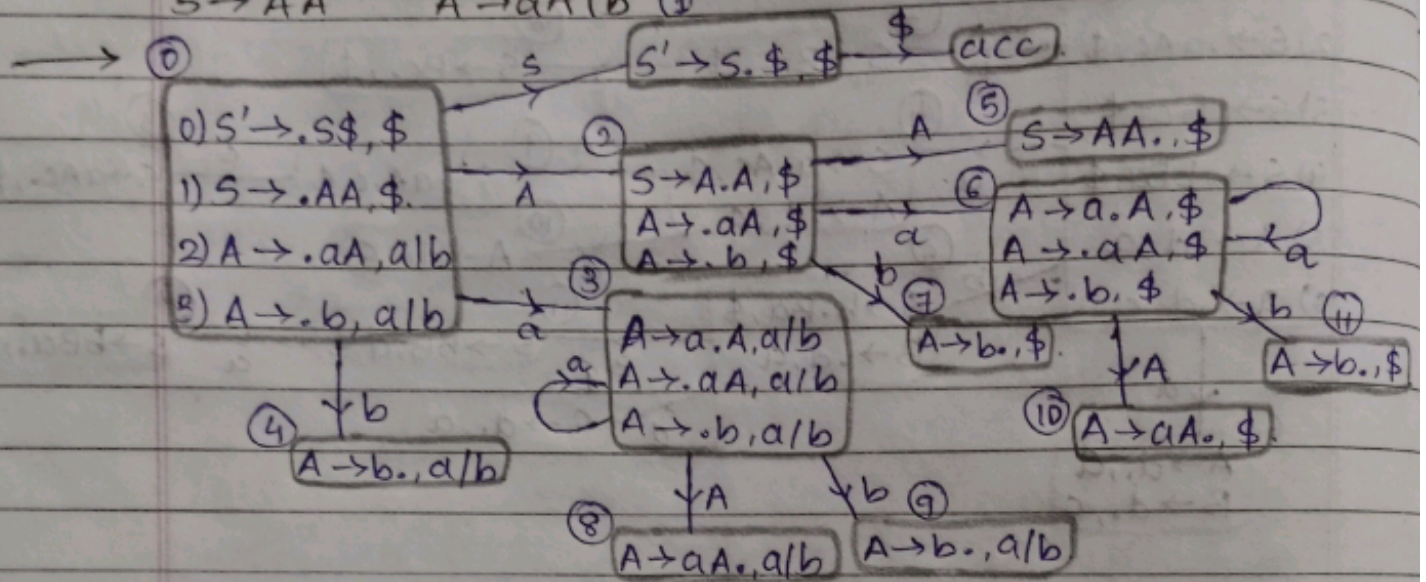 S → AA A → aA/b ①
→ ⓪
S' → S. $, $
$
acc
S
0) S' → .S$, $
1) S → .AA, $.
2) A → .aA, a/b
3) A → .b, a/b
A
②
S → A.A, $
A → .aA, $
A → .b, $
A
⑤
S → AA., $
a
⑥
A → a.A, $
A → .aA, $
A → .b, $
a
b
⑦
A → b., $
b
⑪
A → b., $
A
⑩
A → aA., $
a
③
A → a.A, a/b
A → .aA, a/b
A → .b, a/b
a
b
④
A → b., a/b
A
⑧
A → aA., a/b
b
⑨
A → b., a/b